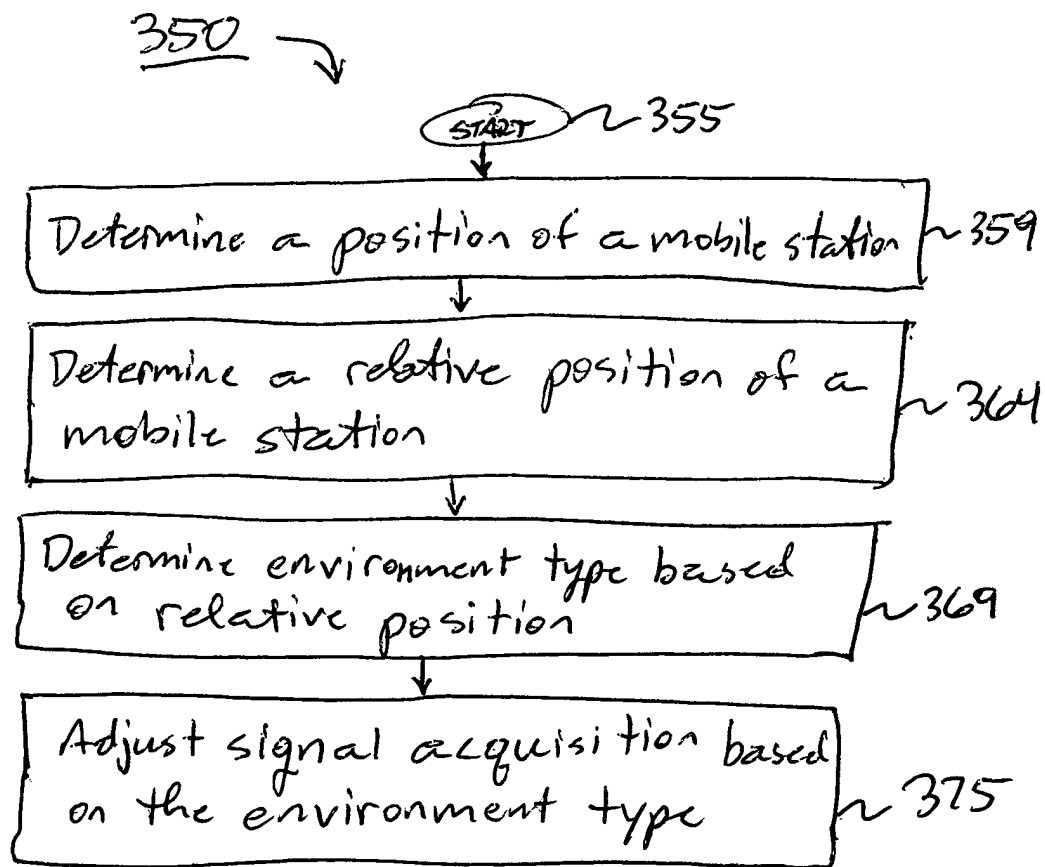 350
START 355
Determine a position of a mobile station 359
Determine a relative position of a
mobile station 364
Determine environment type based
on relative position 369
Adjust signal acquisition based
on the environment type 375